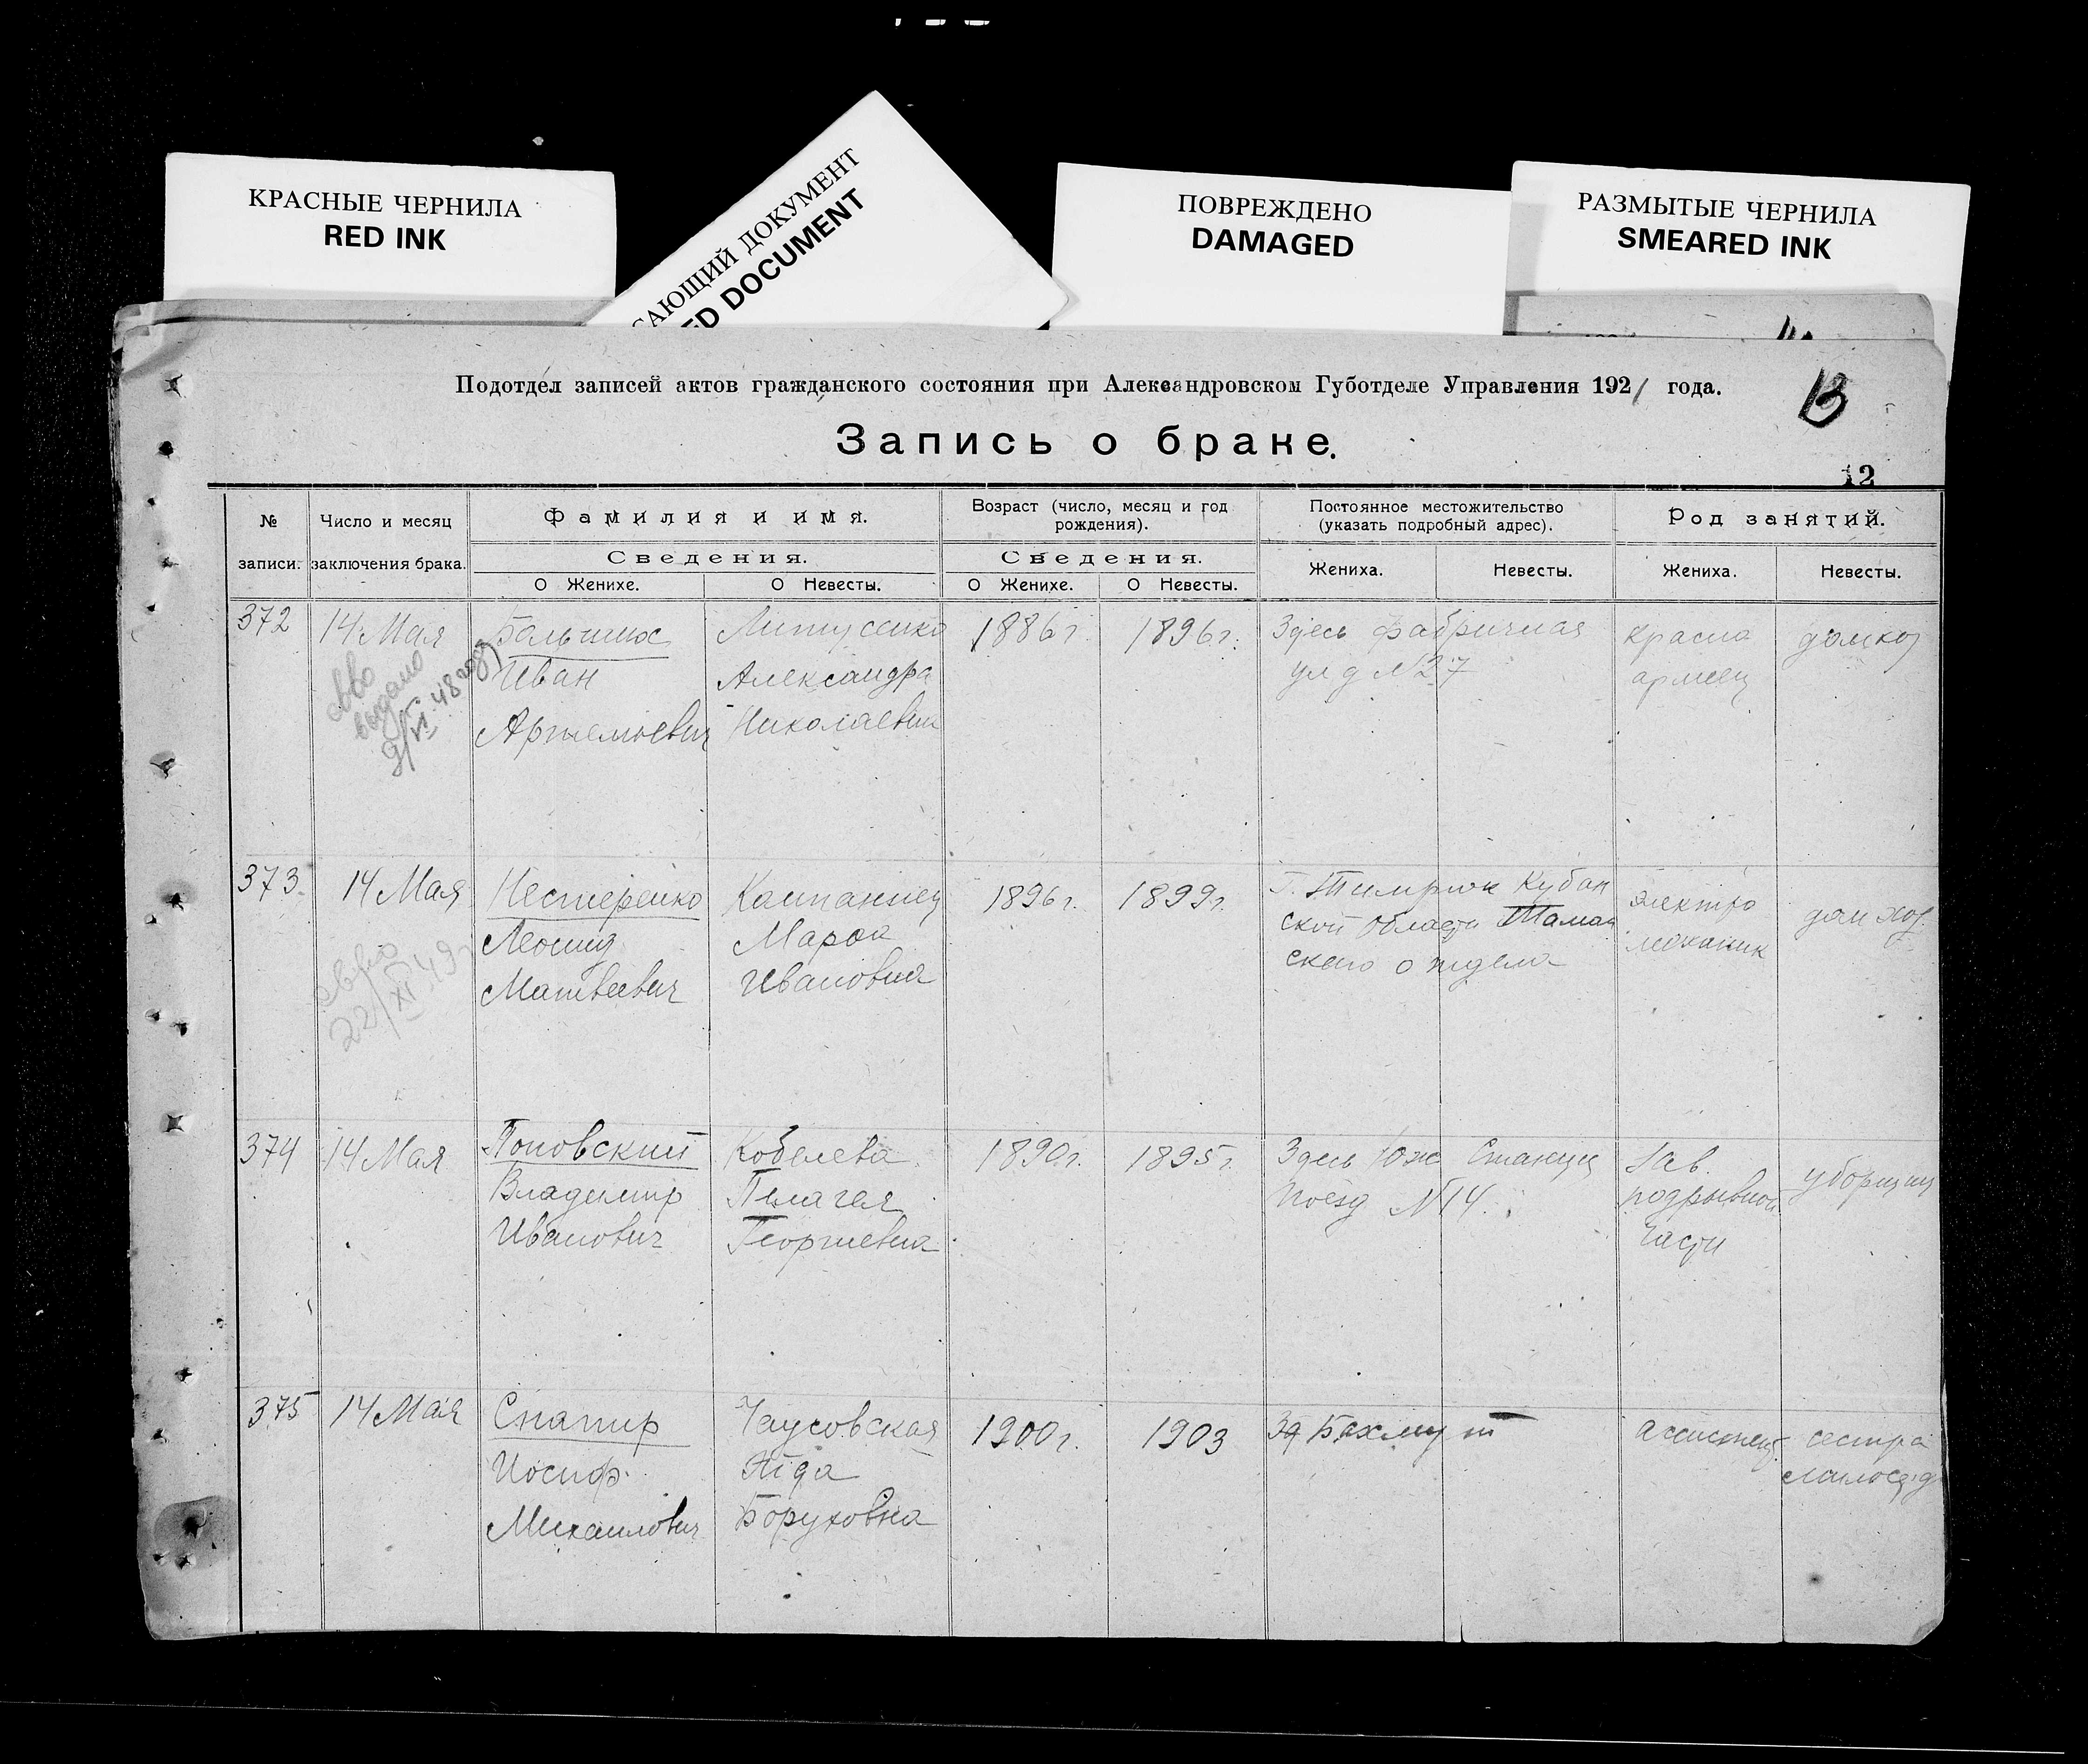 КРАСНЫЕ ЧЕРНИЛА
RED INK
САЮЩИЙ ДОКУМЕНТ
ED DOCUMENT
ПОВРЕЖДЕНО
DAMAGED
РАЗМЫТЫЕ ЧЕРНИЛА
SMEARED INK
Подотдел записей актов гражданского состояния при Александровском Губотделе Управления 1921 года.
13
Запись о браке.
12
№ записи.
Число и месяц заключения брака.
Фамилия и имя.
Сведения.
О Женихе.
О Невесты.
Возраст (число, месяц и год рождения).
Сведения.
О Женихе.
О Невесты.
Постоянное местожительство (указать подробный адрес).
Жениха.
Невесты.
Род занятий.
Жениха.
Невесты.
372
14 Мая
выдано
9/VI 48
Иван
Артемьевич
Александра
Николаевна
1886 г.
1896 г.
Здесь Фабричная
ул д №27
красно
армеец
домхоз
373
14 Мая
22/XI 49 г
Нестеренко
Леонид
Матвеевич
Компаниец
Мария
Ивановна
1896 г.
1899 г.
Г. Темрюк Кубан
ской области Таман
ского отдела
электро
механик
домхоз
374
14 Мая
Поповский
Владимир
Иванович
Кобелева
Пелагея
Георгиевна
1890 г.
1895 г.
Здесь Юж Станция
поезд №14.
Зав.
подрывной
части
уборщиц
375
14 Мая
Снапир
Иосиф
Михаилович
Чаусовская
Аида
Боруховна
1900 г.
1903
Бахмут
ассистент
сестра
милосерд